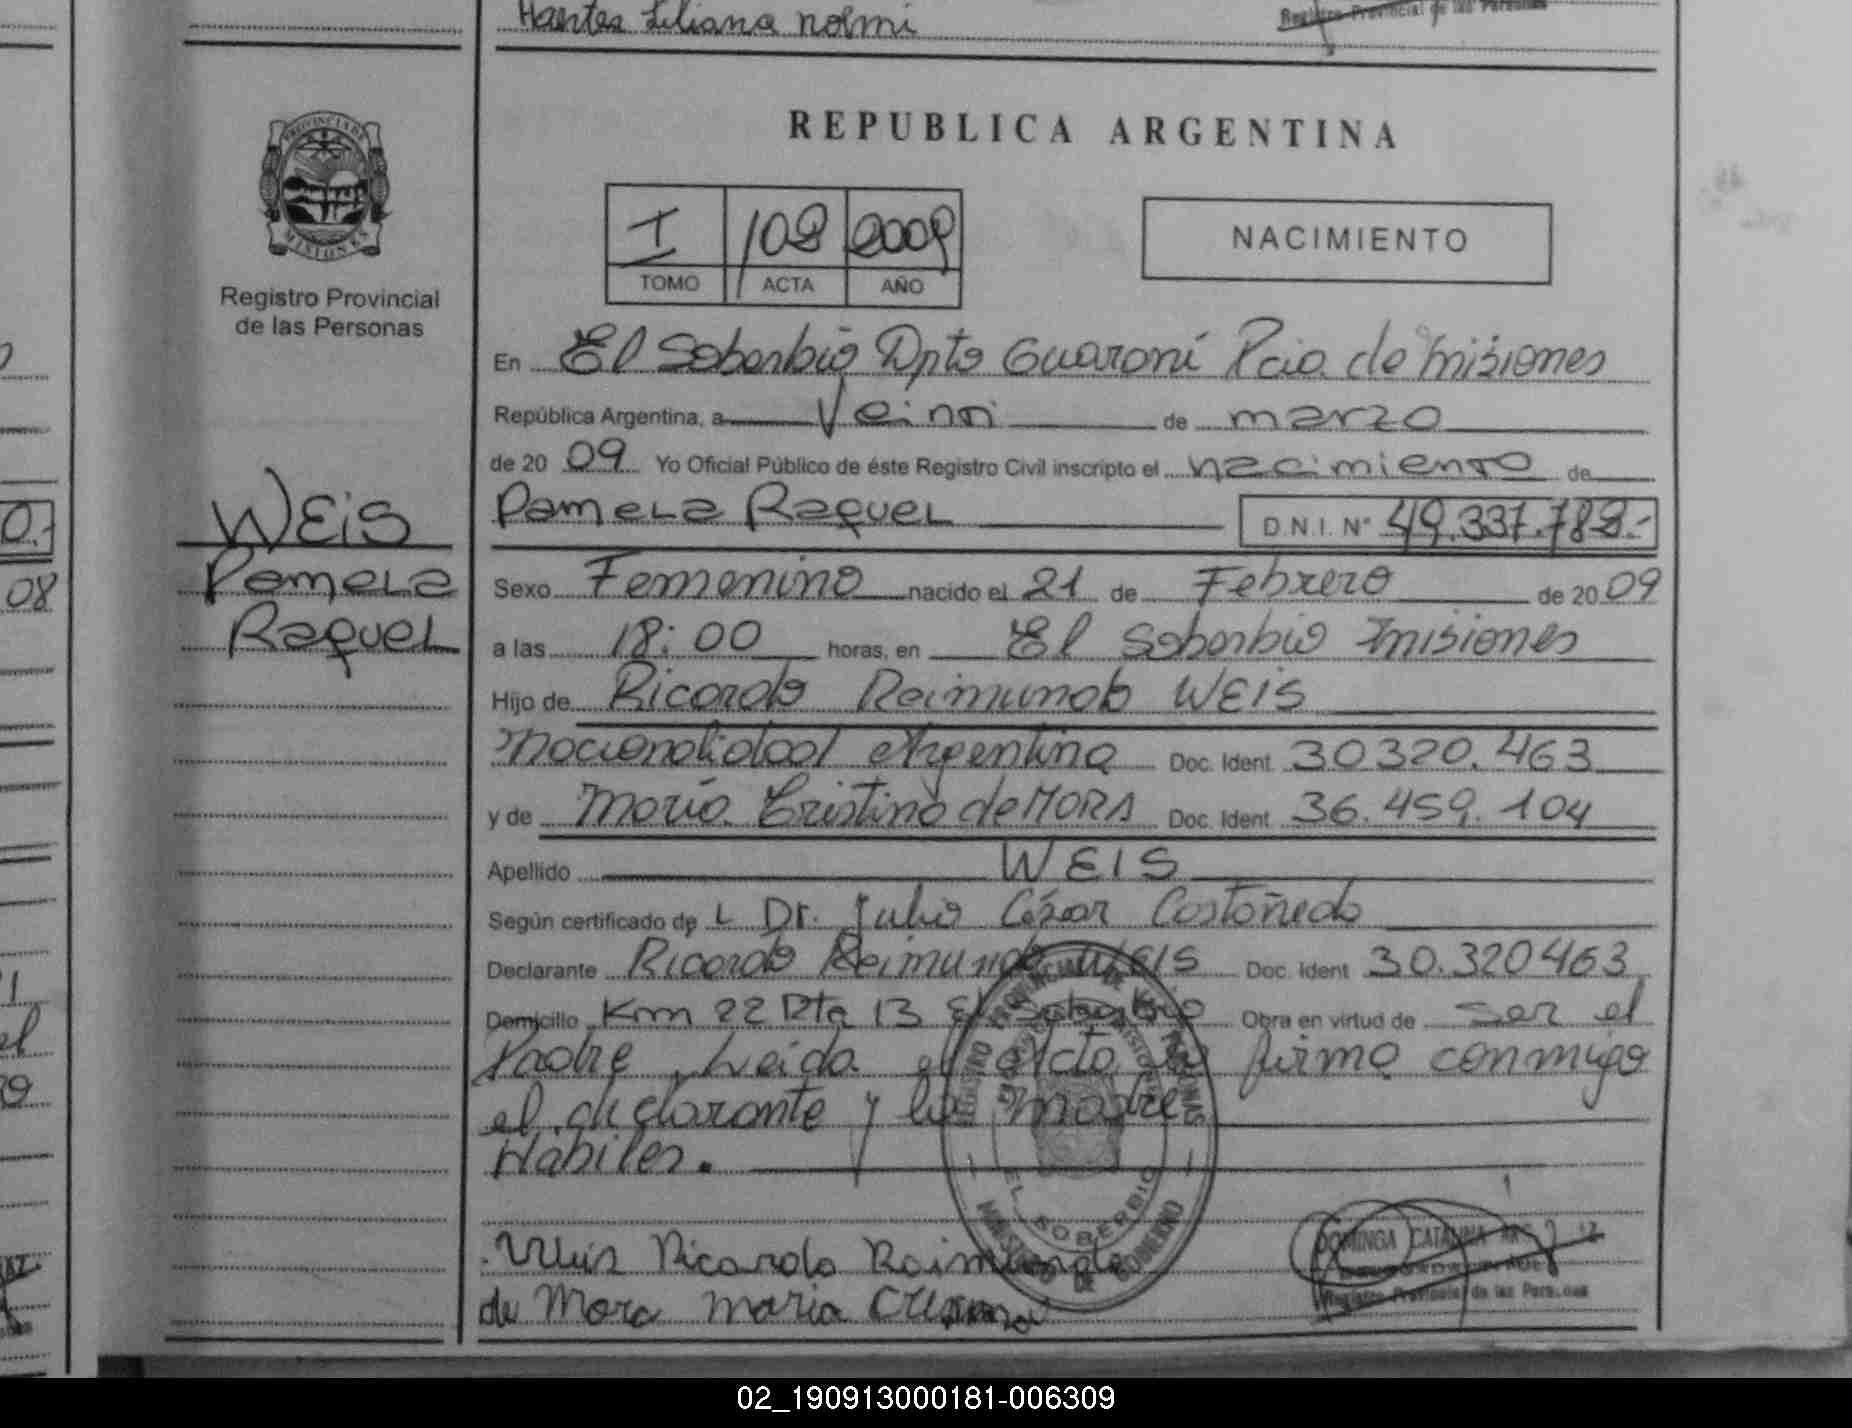 Hartes Liliana Noemi
Registro Provincial de las Personas
PROVINCIA DE
MISIONES
Registro Provincial
de las Personas
REPUBLICA ARGENTINA
I 108 2009
TOMO ACTA AÑO
NACIMIENTO
En El Soberbio Dpto Guaraní Pcia. de Misiones
República Argentina, a Veinti de marzo
de 20 09 Yo Oficial Público de éste Registro Civil inscripto el nacimiento de
WEiS
Pamela Raquel D.N.I. N° 49.337.788.-
Pamela
Raquel
Sexo Femenino nacido el 21 de Febrero de 20 09
a las 18:00 horas, en El Soberbio Misiones
Hijo de Ricardo Reimundo WEIS
nacionalidad Argentina Doc. Ident 30320.463
y de María Cristina de MORA Doc. Ident 36.459.104
Apellido WEIS
Según certificado de L Dr. Julio César Costañedo
Declarante Ricardo Reimundo WEIS Doc. Ident 30.320463
Domicilio Km 22 Rta 13 El Soberbio Obra en virtud de ser el
Padre Leida el Acta la firma conmigo
el declarante y la madre
Habiles.
REGISTRO PROVINCIAL DE LAS PERSONAS
EL SOBERBIO
MINISTERIO DE GOBIERNO
Weis Ricardo Raimundo
de Mora Maria Cristina
DOMINGA CATALINA
Registro Provincial de las Personas
02_190913000181-006309